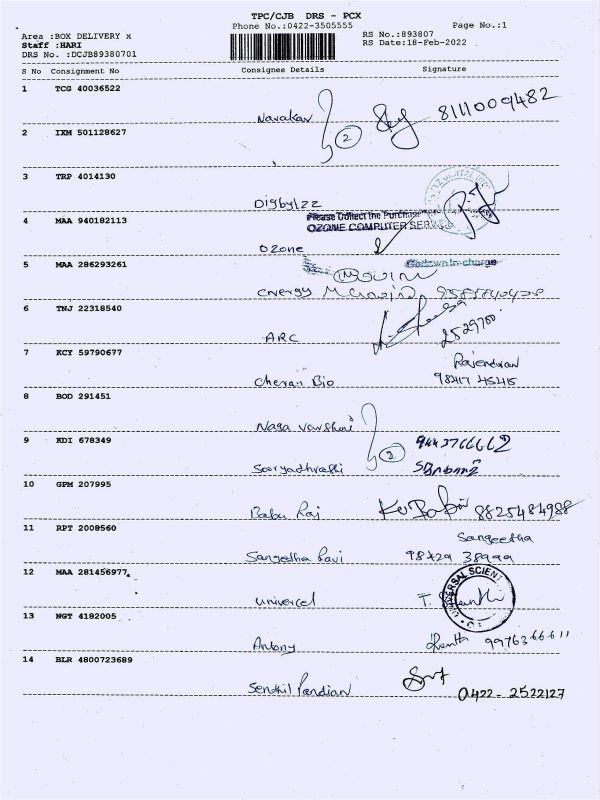 TPC/CJB DRS - PCX
Phone No.:0422-3505555 Page No.:1
Area :BOX DELIVERY x RS No.:893807
Staff :HARI RS Date:18-Feb-2022
DRS No. :DCJB89380701
S No Consignment No Consignee Details Signature
1 TCG 40036522
Navakar 2 8111009482
2 IXM 501128627
3 TRP 4014130
Digbylzz
4 MAA 940182113 Please Collect the Purchase
OZONE COMPUTER SERV
Ozone
5 MAA 286293261
energy
6 TNJ 22318540
ARC 2529700
7 KCY 59790677 Rajendran
Cheran Bio 98417 45415
8 BOD 291451
Naga Varshini
9 KDI 678349 2 9443766662
10 GPM 207995
Babu Raj 8825484988
11 RPT 2008560 Sangeetha
Sangetha Ravi 98429 38999
12 MAA 281456977
Univercel T.
13 NGT 4182005
Antony 9976366611
14 BLR 4800723689
Senthil Pandian 0422-2522127